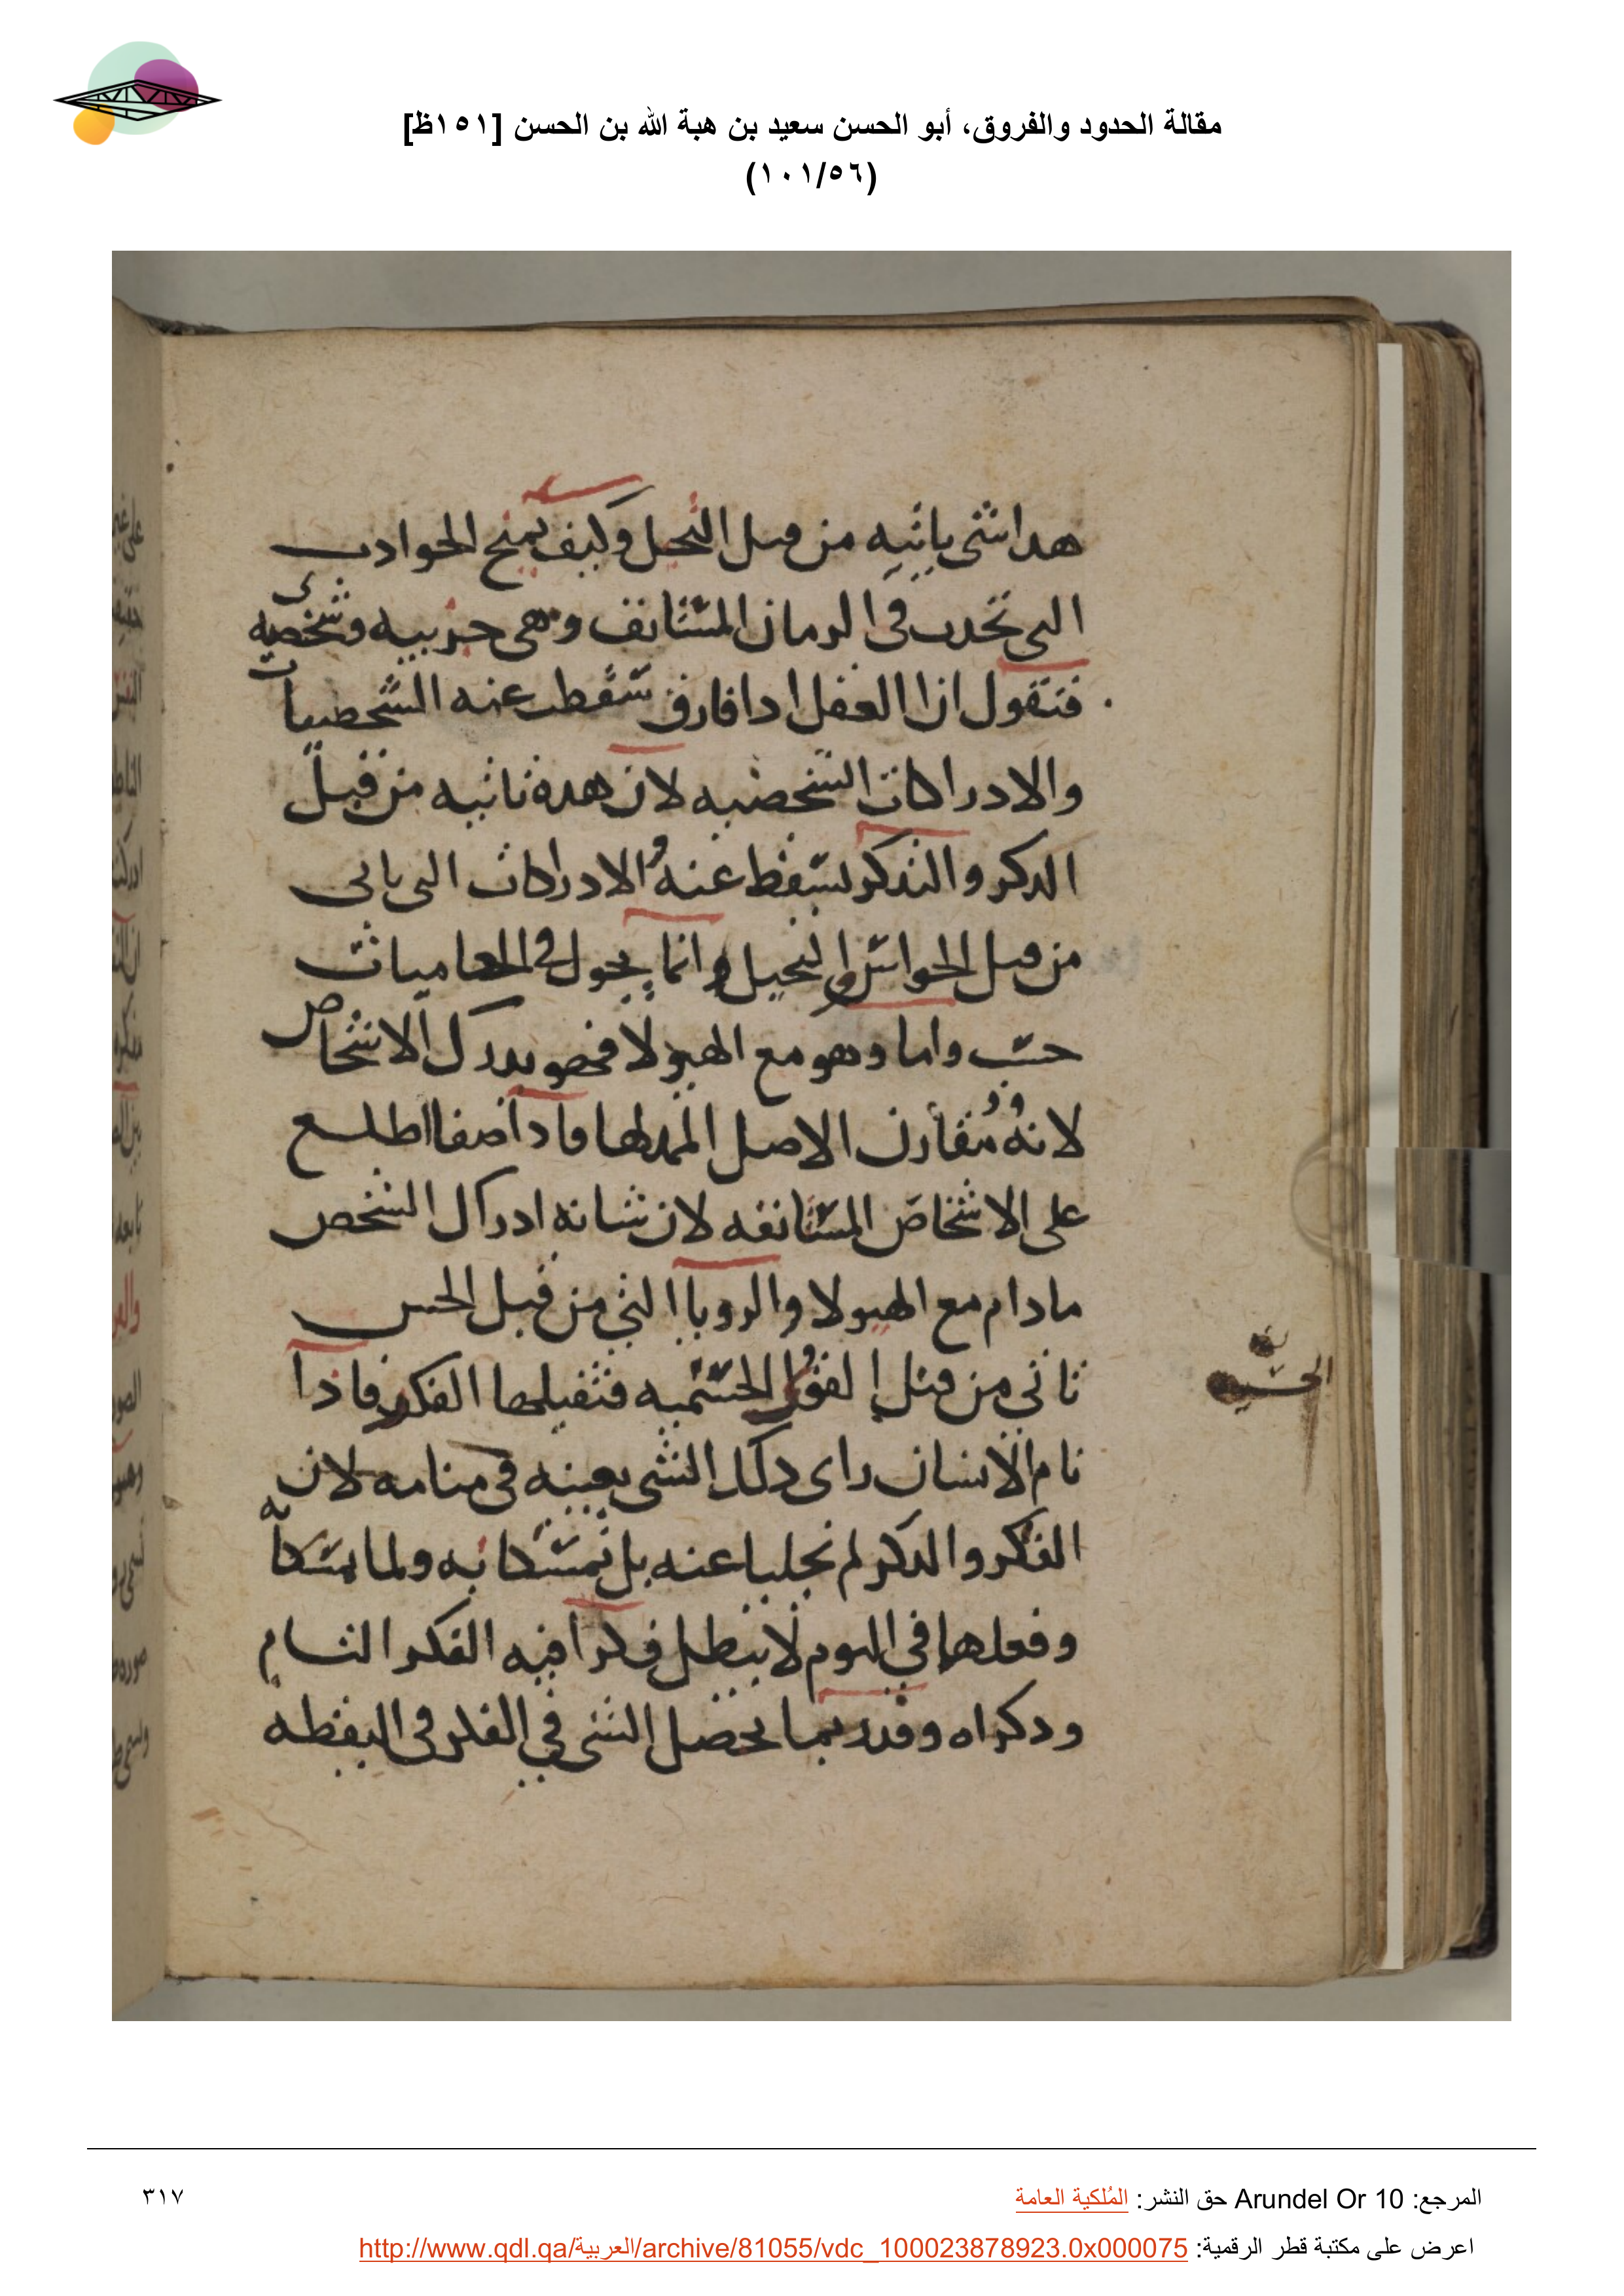 مقالة الحدود والفروق، أبو الحسن سعيد بن هبة الله بن الحسن [١٥١ظ]
(١٠١/٥٦)
هدا شى ياتيه من قبل التخيل وكيف يمنح الحوادث
التي تحدث في الزمان المستانف وهي جزييه وشخصيه
فنقول ان العقل ادا فارق سقطت عنه الشخصيات
والادراكات الشخصيه لان هده تاتيه من قبل
الدكر والتدكر يسقط عنه الادراكات التي ياتي
من قبل الحواس والتخيل وانما يجول في العاميات
حسب واما وهو مع الهيولا فهو يدرك الاشخاص
لانه مقارن الاصل لها فادا صفا اطلع
على الاشخاص المستانفه لان شانه ادراك الشخص
مادام مع الهيولا والرويا التي من قبل الحس
تاتي من قبل القوى الحسية فتقبلها الفكر فادا
الحسيه
نام الانسان راى دلك الشي بعينه في منامه لان
الفكر والدكر لم تجليا عنه بل تمسكا به ولما تمسكا به
وفعلها في النوم لا يبطل فكرا فيه الفكر التام
ودكراه وقد ربما يحصل الشي في الفكر في اليقظه
المرجع: Arundel Or 10 حق النشر: المُلكية العامة
٣١٧
اعرض على مكتبة قطر الرقمية: http://www.qdl.qa/العربية/archive/81055/vdc_100023878923.0x000075